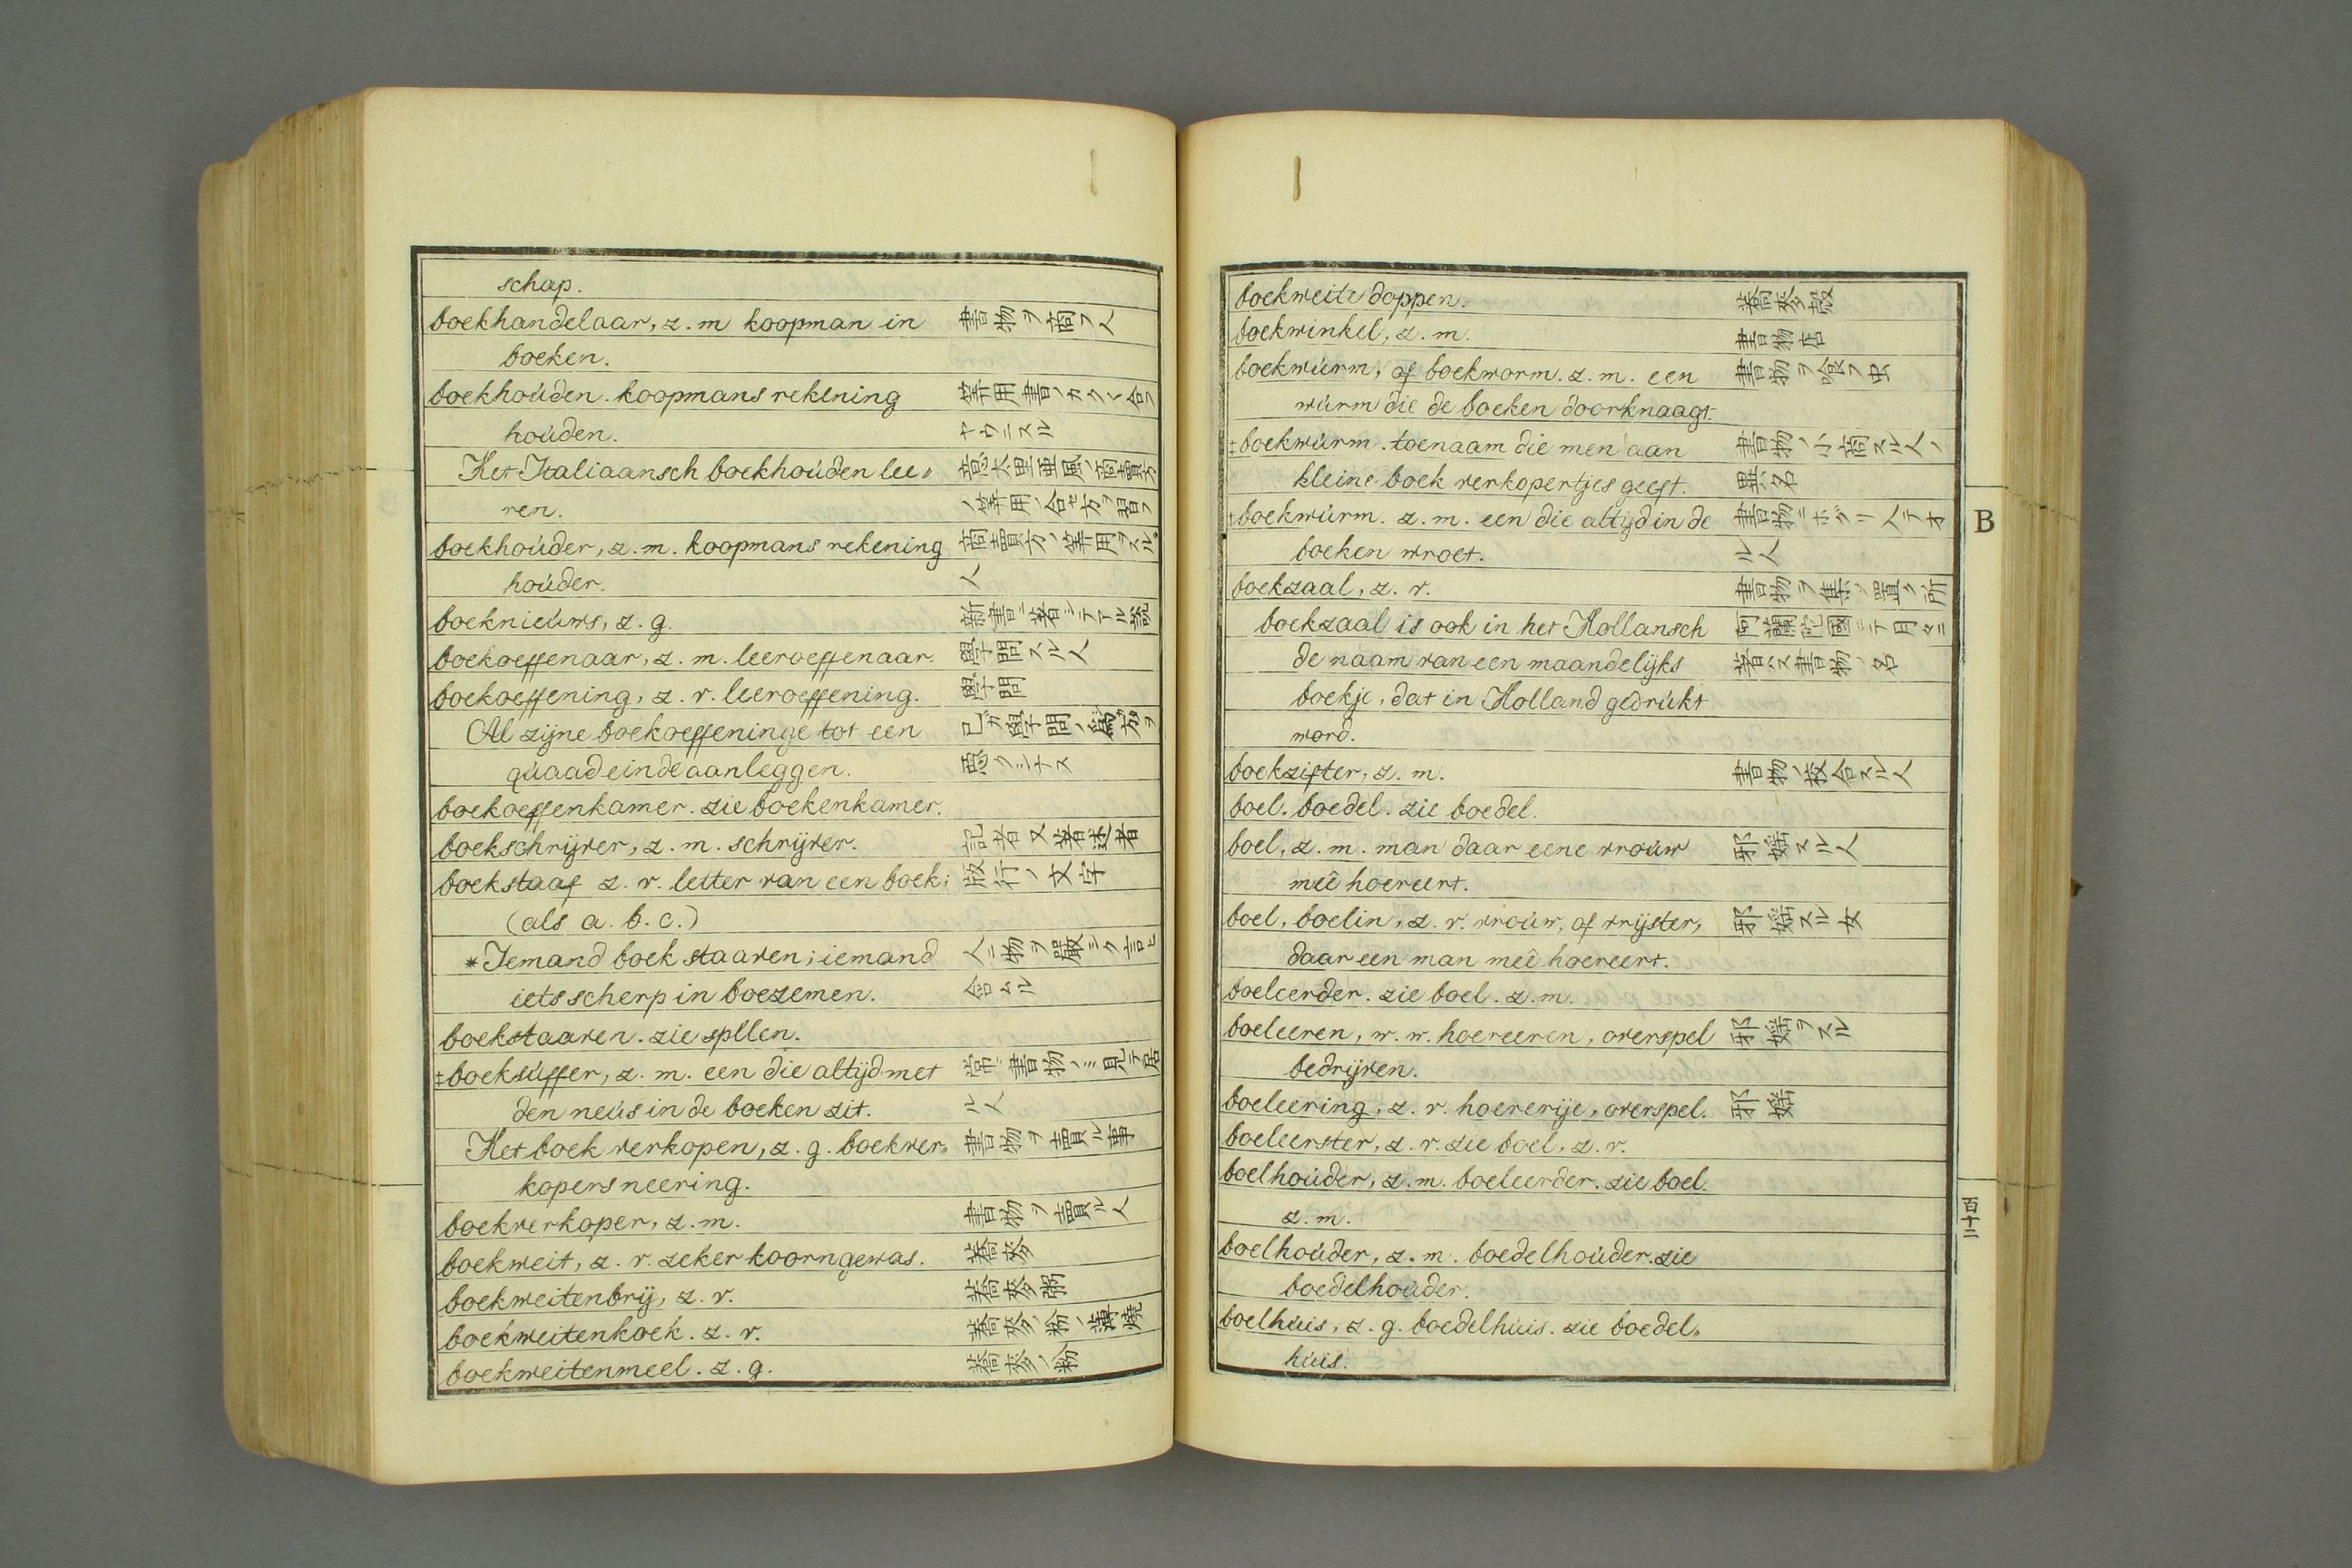 schap.
boekhandelaar, z. m koopman in 書物ヲ商フ人
boeken.
boekhoúden. koopmans rekening 筭用書ノカクヘ合フ
hoúden. ヤウニスル
Het Italiaansch boekhoúden lee= 意太里亜風ノ商賣方
ren. ノ筭用ノ合セ方ヲ習フ
boekhoúder, z. m. koopmans rekening 商賣方ノ筭用ヲスル
hoúder. 人
boeknieúws, z. g. 新書ニ著シテアル説
boekoeffenaar, z. m. leeroeffenaar. 學問スル人
boekoeffening, z. v. leeroeffening. 學問
Al zijne boekoeffeninge tot een 己ガ學問ノ爲方ヲ
qúaad einde aanleggen. 悪クシナス
boekoeffenkamer. zie boekenkamer.
boekschrijver, z. m. schrijver. 記者又著述者
boekstaaf z. v. letter van een boek; 版行ノ文字
(als a. b. c.)
*Iemand boek staaven; iemand 人ニ物ヲ嚴シク言ヒ
iets scherp in boezemen. 含ムル
boekstaaven. zie spllen.
‡boeksúffer, z. m. een die altijd met 常ニ書物ノミ見テ居
den neús in de boeken zit. ル人
Het boek verkopen, z. g. boekver= 書物ヲ賣ル事
kopers neering.
boekverkoper, z. m. 書物ヲ賣ル人
boekweit, z. v. zeker koorngewas. 蕎麥
boekweitenbrij, z. v. 蕎麥粥
boekweitenkoek. z. v. 蕎麥ノ粉ノ薄焼
boekweitenmeel. z. g. 蕎麥ノ粉
boekweite doppen. 蕎麥殻
boekwinkel, z. m. 書物店
boekwúrm, of boekworm. z. m. een 書物ヲ喰フ虫
wúrm die de boeken doorknaagt.
‡boekwúrm. toenaam die men aan 書物ノ小商スル人ノ
kleine boek verkopertjes geeft. 異名
‡boekwúrm. z. m. een die altijd in de 書物ニホグリ入テオ
boeken wroet. ル人
boekzaal, z. v. 書物ヲ集メ置ク所
boekzaal is ook in het Hollansch 阿蘭陀國ニテ月々ニ
de naam van een maandelijks 著ハス書物ノ名
boekje, dat in Holland gedrúkt
word.
boekzifter, z. m. 書物ノ校合スル人
boel. boedel. zie boedel.
boel, z. m. man daar eene vroúw 邪婬スル人
meê hoereert.
boel, boelin, z. v. vroúw, of vrijster, 邪婬スル女
daar een man meê hoereert.
boeleerder. zie boel. z. m.
boeleeren, w. w. hoereeren, overspel 邪婬ヲスル
bedrijven.
boeleering, z. v. hoererije, overspel. 邪婬
boeleerster, z. v. zie boel, z. v.
boelhoúder, z. m. boeleerder. zie boel.
z. m.
boelhoúder, z. m. boedelhoúder. zie
boedelhoúder.
boelhúis, z. g. boedelhúis. zie boedel=
húis.
B
百十二